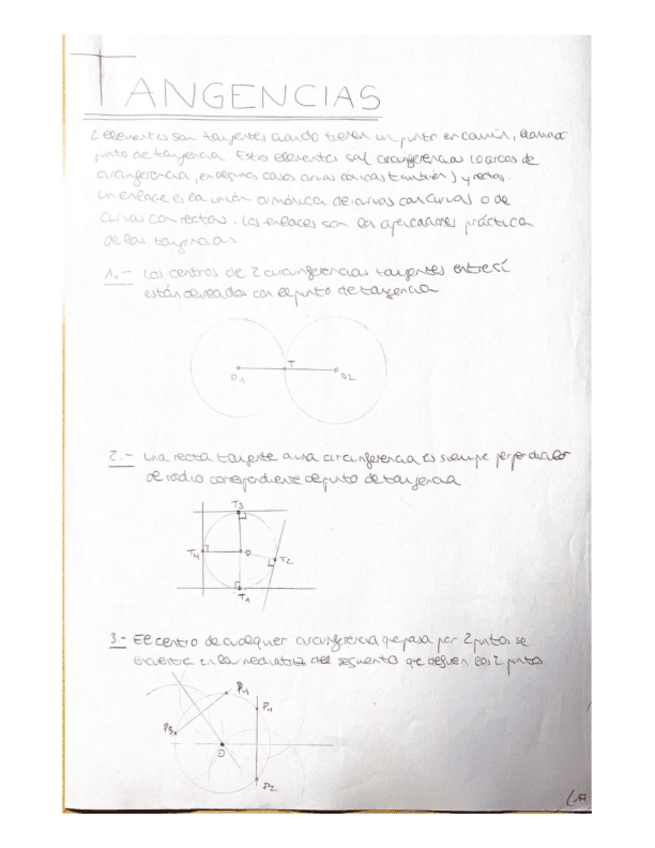 TANGENCIAS
2 elementos son tangentes cuando tienen un punto en común, llamado
punto de tangencia. Estos elementos son circunferencias (o arcos de
circunferencia, en algunos casos curvas cónicas también) y rectas.
Un enlace es la unión armónica de curvas con curvas o de
curvas con rectas. Los enlaces son las aplicaciones práctica
de las tangencias
1.- Los centros de 2 circunferencias tangentes entre sí
están alineados con el punto de tangencia
O1 T O2
2.- Una recta tangente a una circunferencia es siempre perpendicular
al radio correspondiente al punto de tangencia
T3
T4 O T2
T1
3.- El centro de cualquier circunferencia que pasa por 2 puntos se
encuentra en la mediatriz del segmento que definen los 2 puntos
P4 P1
P3
O
P2